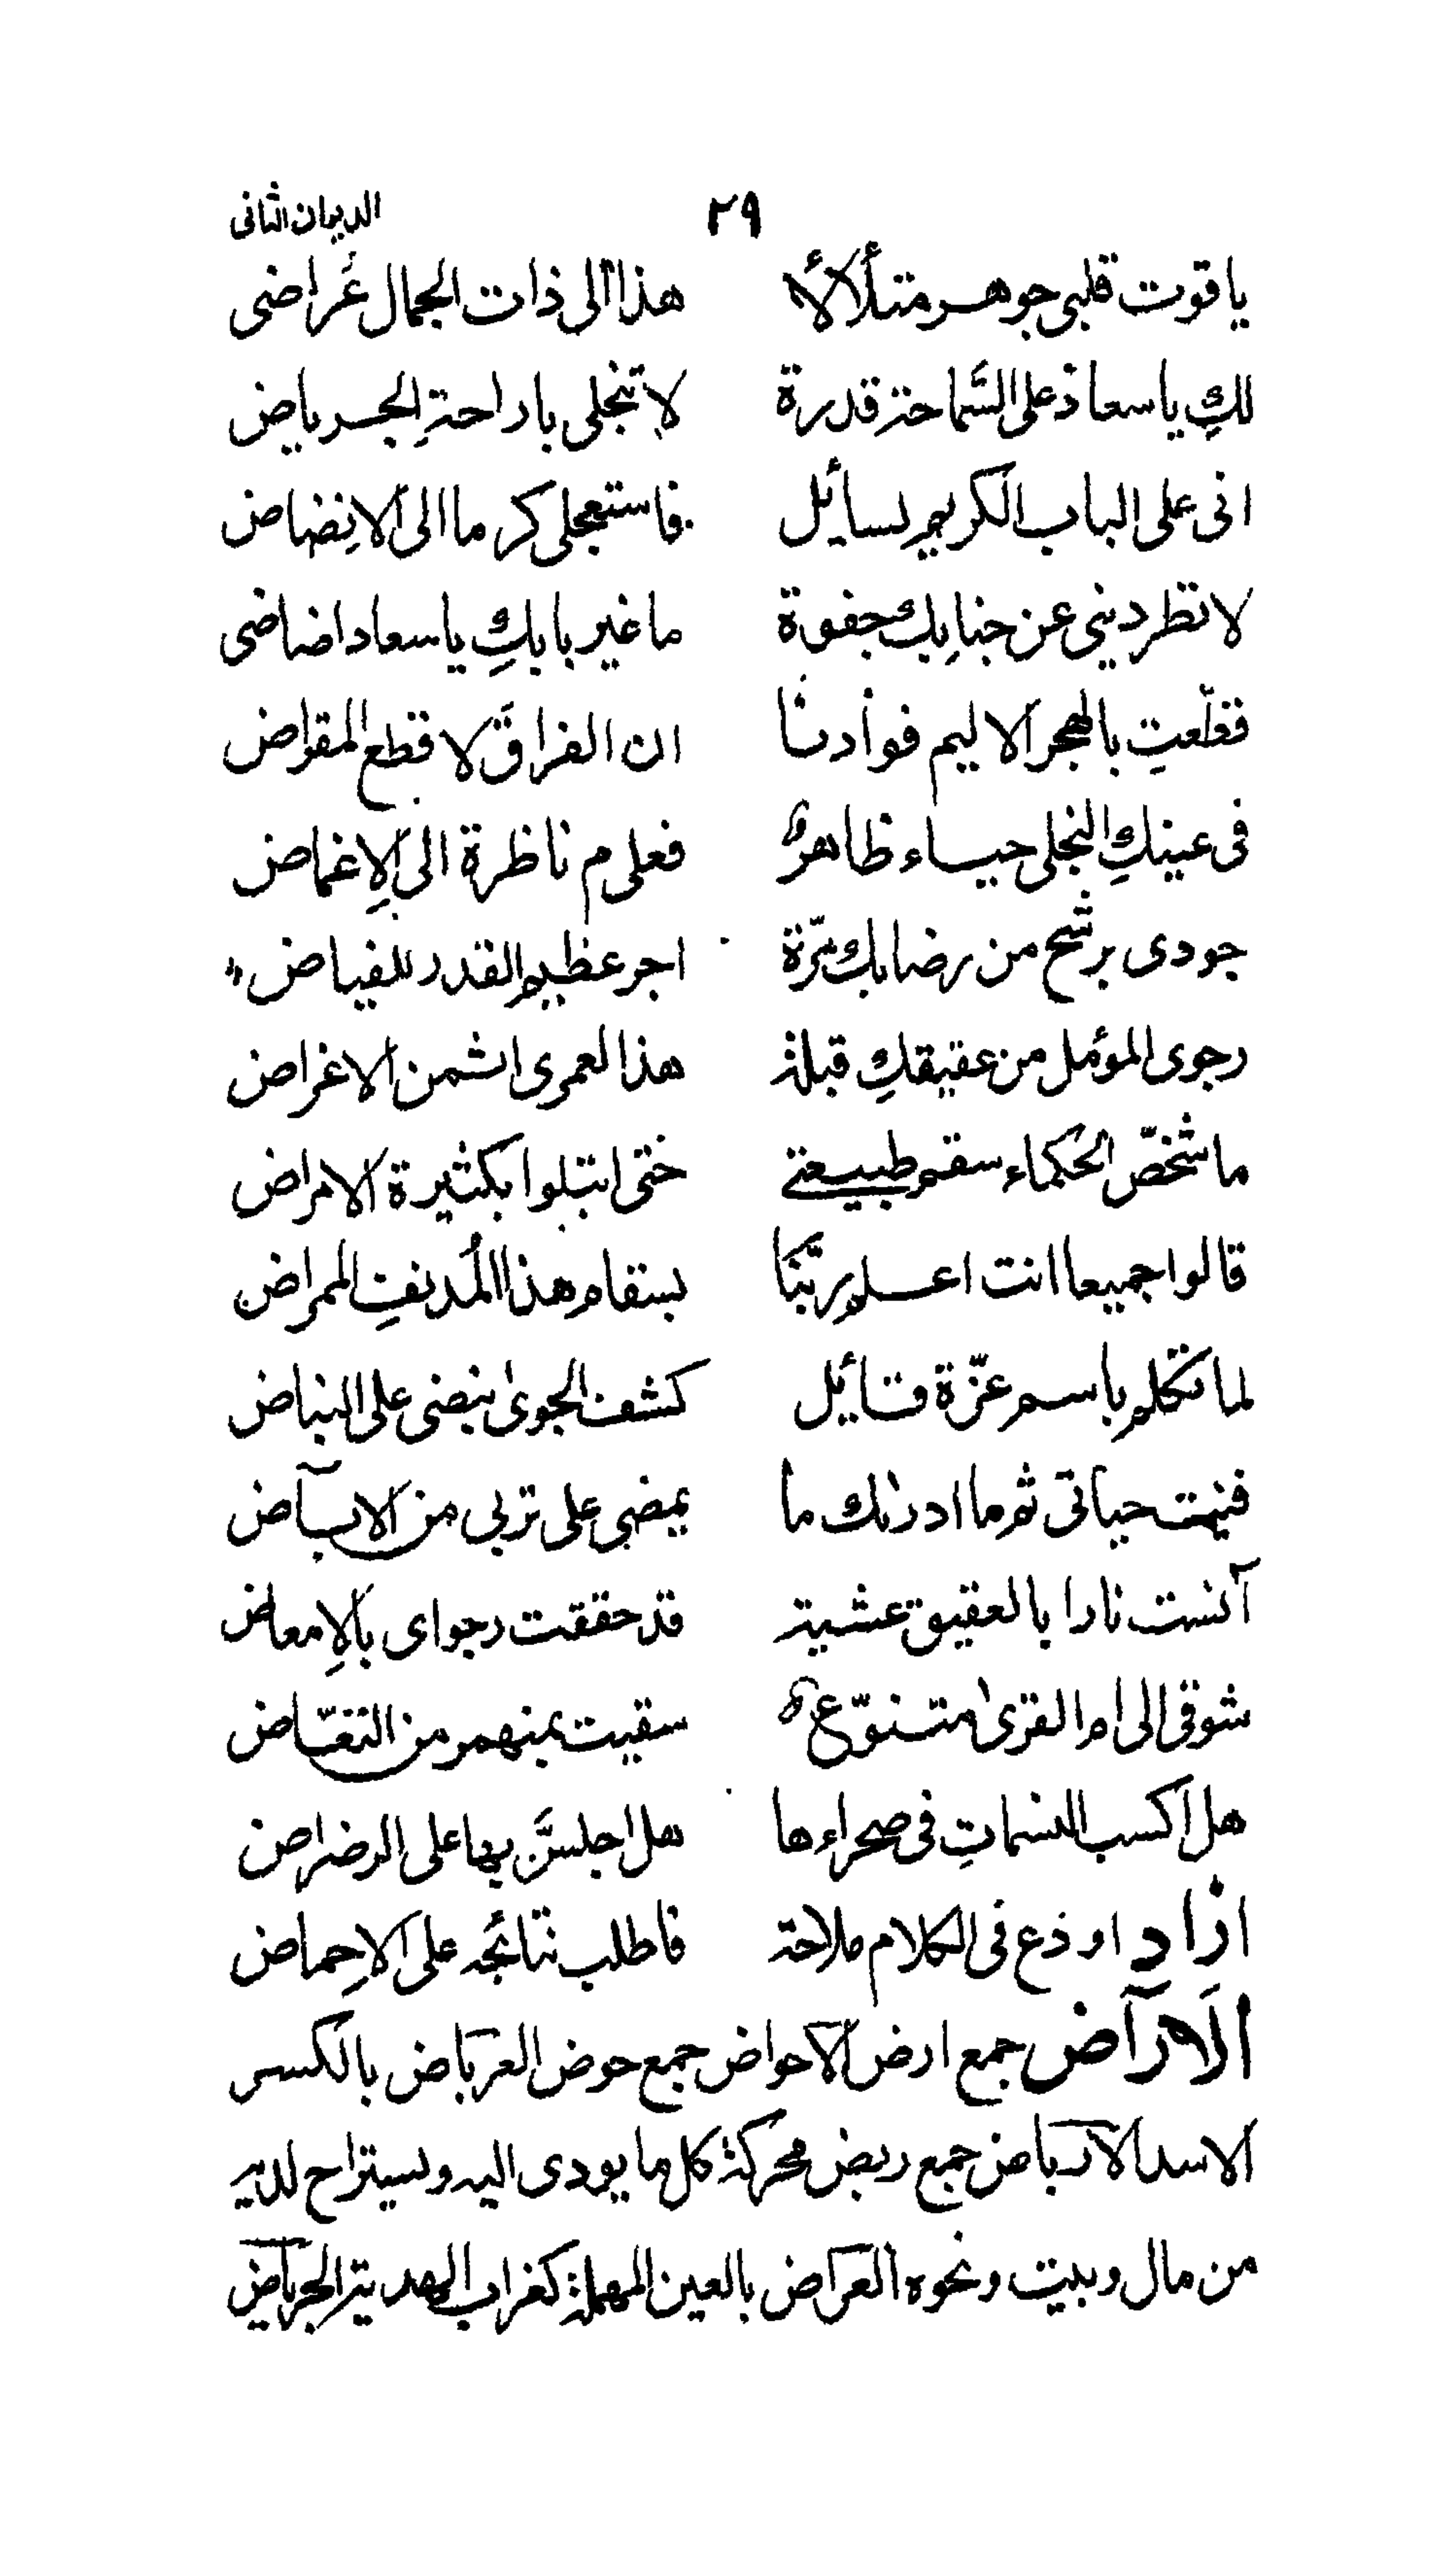 ٢٩ الديوان الثانى
ياقوت قلبى جوهر متلألأ هذا الى ذات الجمال عُراضى
لكِ يا سعاد على السَّماحة قدرة لا تبخلى يا راحةِ الجرياض
انى على الباب الكريم لسائل فاستعجلى كرما الى الانِضاض
لا تطردينى عن جنابِك جفوة ما غير بابكِ يا سعاد اضاضى
قطّعتِ بالهجر الاليم فوأدنا ان الفراق لا قطع المقراض
فى عينكِ النجلى حياء ظاهر فعلى م ناظرة الى الاِغماض
جودى برشح من رضابك مرّة اجر عظيم القدر للفياض
رجوى المؤمل من عقيقكِ قبلة هذا لعمرى اثمن الاغراض
ما شخّص الحكماء سقم طبيعتے حتى ابتلوا بكثيرة الامراض
قالوا جميعا انت اعلم ربَّنا بسقام هذا المُدنفِ الممراض
لما تكلم باسم عزّة قائل كشف الجوىٰ نبضى على النباض
فنيت حياتى ثم ما ادراك ما يمضى على تربى من الآباض
آنست نارا بالعقيق عشية قد حققت رجواى بالاِمعاض
شوقى الى ام القرىٰ متنوّع سقيت بمنهمر من النغّاض
هل اكسب النسماتِ فى صحراءها هل اجلسَّن بها على الرضراض
ازاد اوذع فى الكلام ملاحة فاطلب نتائجه على الاحِماض
الارآض جمع ارض الاحواض جمع حوض العرباض بالكسر
الاسد الارباض جمع ربض محركة كل ما يودى اليه ويستراح لديه
من مال وبيت ونحوه العراض بالعين المهملة كغراب الهدية الجرياض